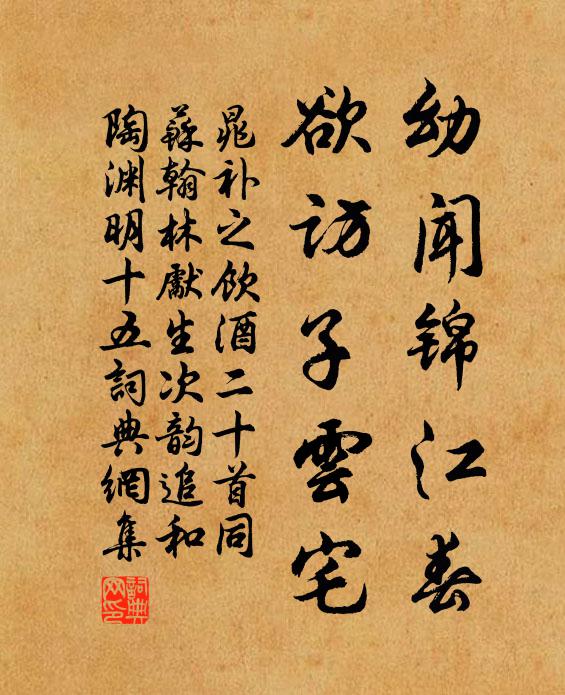 幼闻锦江春
欲访子雲宅
晁补之饮酒二十首同
蘇翰林獻生次韵追和
陶渊明十五詞典網集
詞典网印